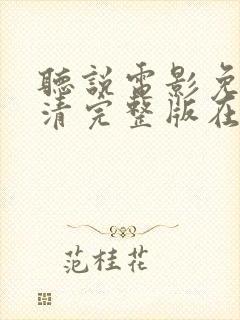 聽說電影免
清完整版在
范桂花